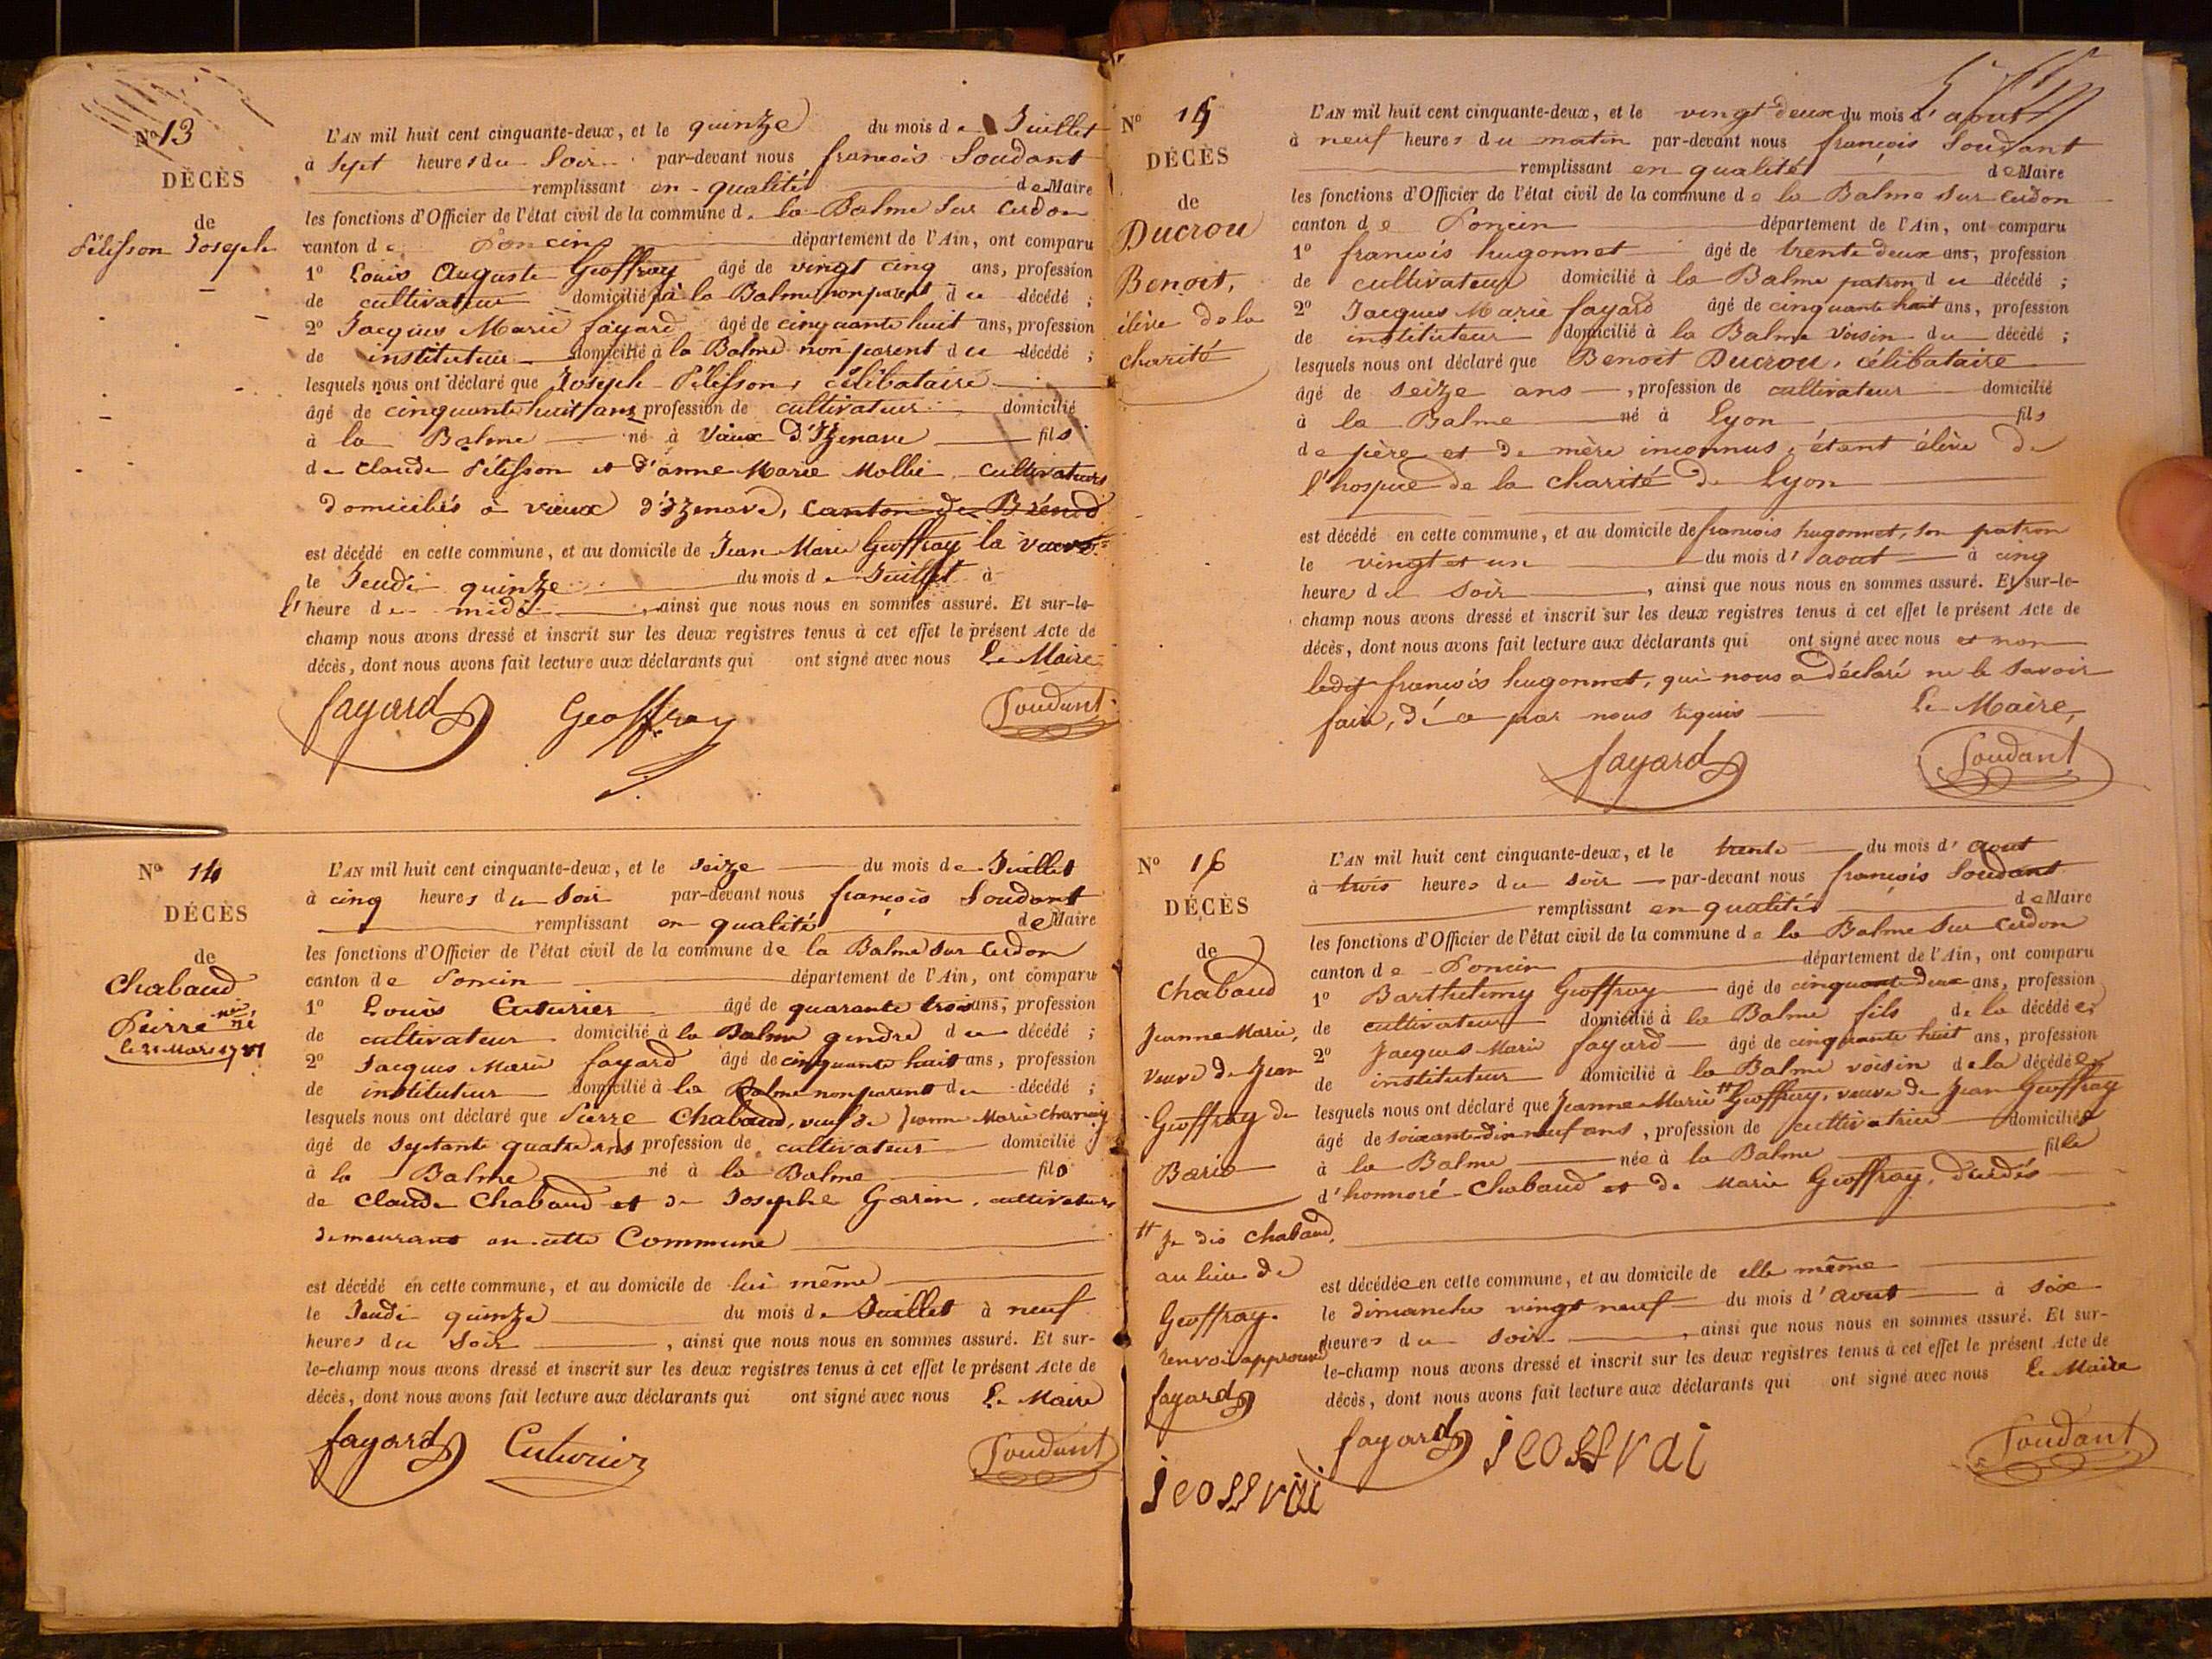 No 13
DÉCÈS
de
Pélisson Joseph
L'AN mil huit cent cinquante-deux, et le quinze du mois de Juillet
à sept heures du soir par-devant nous françois Soudant
remplissant en qualité de Maire
les fonctions d'Officier de l'état civil de la commune de la Balme sur Cerdon
canton de Poncin département de l'Ain, ont comparu
1o Louis Auguste Geoffray âgé de vingt cinq ans, profession
de cultivateur domicilié à la Balme non parent du décédé ;
2o Jacques Marie fayard âgé de cinquante huit ans, profession
de instituteur domicilié à la Balme non parent du décédé ;
lesquels nous ont déclaré que Joseph Pélisson, célibataire
âgé de cinquante huit ans profession de cultivateur domicilié
à la Balme né à Vieux d'Izenave fils
de Claude Pélisson et d'anne Marie Mollie cultivateurs
domiciliés à vieux d'Izenave, canton de Brénod
est décédé en cette commune, et au domicile de Jean Marie Geoffray la
le Jeudi quinze du mois de Juillet à
l'heure de midi, ainsi que nous nous en sommes assuré. Et sur-le-
champ nous avons dressé et inscrit sur les deux registres tenus à cet effet le présent Acte de
décès, dont nous avons fait lecture aux déclarants qui ont signé avec nous Le Maire
fayard Geoffray Soudant
No 14
DÉCÈS
de
Chabaud
Pierre né
le 21 Mars 1781
L'AN mil huit cent cinquante-deux, et le seize du mois de Juillet
à cinq heures du soir par-devant nous françois Soudant
remplissant en qualité de Maire
les fonctions d'Officier de l'état civil de la commune de la Balme sur Cerdon
canton de Poncin département de l'Ain, ont comparu
1o Louis Cuturier âgé de quarante trois ans, profession
de cultivateur domicilié à la Balme gendre du décédé ;
2o Jacques Marie fayard âgé de cinquante huit ans, profession
de instituteur domicilié à la Balme non parent du décédé ;
lesquels nous ont déclaré que Pierre Chabaud, veuf de Jeanne Marie
âgé de septante quatre ans profession de cultivateur domicilié
à la Balme né à la Balme fils
de Claude Chabaud et de Josephe Garin, cultivateurs
demeurant en cette Commune
est décédé en cette commune, et au domicile de lui même
le Jeudi quinze du mois de Juillet à neuf
heures du soir, ainsi que nous nous en sommes assuré. Et sur-
le-champ nous avons dressé et inscrit sur les deux registres tenus à cet effet le présent Acte de
décès, dont nous avons fait lecture aux déclarants qui ont signé avec nous Le Maire
fayard Cuturier Soudant
No 15
DÉCÈS
de
Ducrou
Benoit,
élève de la
charité
L'AN mil huit cent cinquante-deux, et le vingt deux du mois d'aout
à neuf heures du matin par-devant nous françois Soudant
remplissant en qualité de Maire
les fonctions d'Officier de l'état civil de la commune de la Balme sur Cerdon
canton de Poncin département de l'Ain, ont comparu
1o françois hugonnet âgé de trente deux ans, profession
de cultivateur domicilié à la Balme patron du décédé ;
2o Jacques Marie fayard âgé de cinquante huit ans, profession
de instituteur domicilié à la Balme voisin du décédé ;
lesquels nous ont déclaré que Benoit Ducrou, célibataire
âgé de seize ans, profession de cultivateur domicilié
à la Balme né à Lyon fils
de père et de mère inconnus, étant élève de
l'hospice de la charité de Lyon
est décédé en cette commune, et au domicile de françois hugonnet, son patron
le vingt et un du mois d'aout à cinq
heures du soir, ainsi que nous nous en sommes assuré. Et sur-le-
champ nous avons dressé et inscrit sur les deux registres tenus à cet effet le présent Acte de
décès, dont nous avons fait lecture aux déclarants qui ont signé avec nous et non
ledit françois hugonnet, qui nous a déclaré ne le savoir
faire, de ce par nous requis Le Maire,
fayard Soudant
No 16
DÉCÈS
de
Chabaud
Jeanne Marie,
veuve de Jean
Geoffray de
Bario
L'AN mil huit cent cinquante-deux, et le trente du mois d'aout
à trois heures du soir par-devant nous françois Soudant
remplissant en qualité de Maire
les fonctions d'Officier de l'état civil de la commune de la Balme sur Cerdon
canton de Poncin département de l'Ain, ont comparu
1o Barthelemy Geoffray âgé de cinquante deux ans, profession
de cultivateur domicilié à la Balme fils de la décédée ;
2o Jacques Marie fayard âgé de cinquante huit ans, profession
de instituteur domicilié à la Balme voisin de la décédée ;
lesquels nous ont déclaré que Jeanne Marie # Geoffray, veuve de Jean Geoffray
âgé de soixante dix neuf ans, profession de cultivatrice domiciliée
à la Balme née à la Balme fille
d'honnoré Chabaud et de Marie Geoffray, décédés
# Je dis Chabaud,
au lieu de
Geoffray.
renvoi approuvé
fayard
jeoffrai
est décédée en cette commune, et au domicile de elle même
le dimanche vingt neuf du mois d'aout à six
heures du soir, ainsi que nous nous en sommes assuré. Et sur-
le-champ nous avons dressé et inscrit sur les deux registres tenus à cet effet le présent Acte de
décès, dont nous avons fait lecture aux déclarants qui ont signé avec nous Le Maire
fayard jeoffrai Soudant